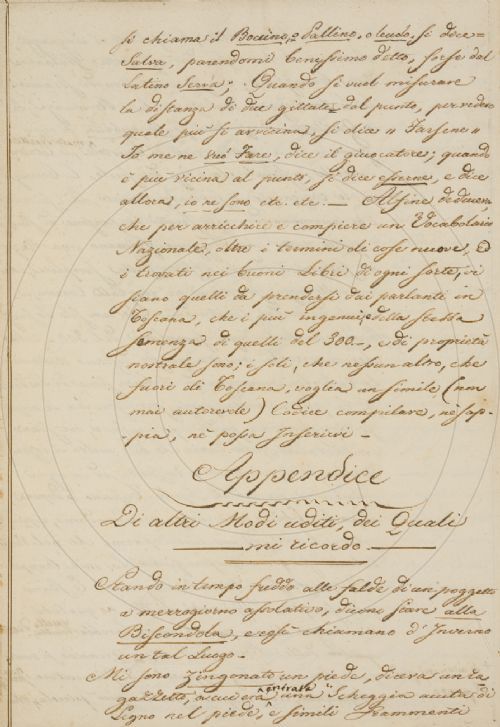 si chiama il Boccino, o Pallino, o leudo, si dice =
Salva, parendomi benissimo detto, forse dal
Latino Serva; Quando si vuol misurare
la distanza di due gittate dal punto, per vedere
quale più si avvicina, si dice „ Farsene „
Io me ne vuo' Fare, dice il giuocatore; quando
è più vicina al punto, si dice esserne, e dice
allora, io ne sono etc. etc. — Alfine
che per arricchire e compiere un Vocabolario
Nazionale, oltre i termini di cose nuove, Ed
i trovati nei buoni Libri di ogni sorte, vi
siano quelli da prendersi dai parlanti in
Toscana, che i più ingenui, e della stessa
semenza di quelli del 300-, e di proprietà
nostrale sono; i soli, che nessun altro, che
fuori di Toscana, voglia un simile (non
mai autorevole) Codice compilare, nè sap-
-pia, nè possa Inserirvi -
Appendice
Di altri Modi uditi, dei Quali
mi ricordo
Stando in tempo freddo alle falde di un poggetto
a mezzogiorno assolativo, dicono stare alla
Biscondola, e così chiamano d'Inverno
un tal Luogo -
Mi sono zingonato un piede, diceva un ra-
gazzetto, a cui era entrata una Scheggia acuta di
Legno nel piede, e simili frammenti